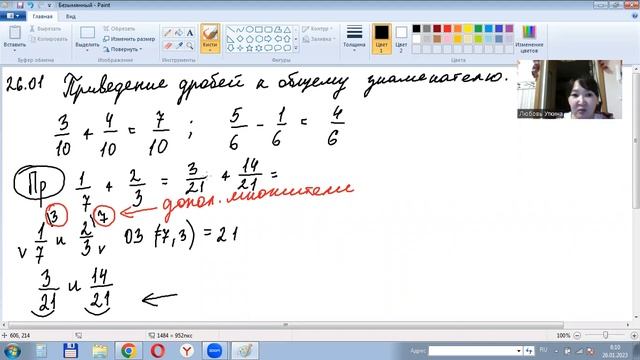 Безымянный - Paint
Главная Вид
Вырезать
Копировать
Вставить
Обрезать
Изменить размер
Повернуть
Выделить
Кисти
Контур
Заливка
Толщина
Цвет 1
Цвет 2
Изменение цветов
Буфер обмена Изображение Инструменты Фигуры Цвета
26.01 Приведение дробей к общему знаменателю.
3/10 + 4/10 = 7/10 ; 5/6 - 1/6 = 4/6
Пр 1/7 + 2/3 = 3/21 + 14/21 =
3 7 ← допол. множители
v 1/7 и 2/3 v ОЗ (7, 3) = 21
3/21 и 14/21 ←
Любовь Уткина
606, 214 1484 × 952пкс 100%
Адрес RU 6:10
26.01.2023